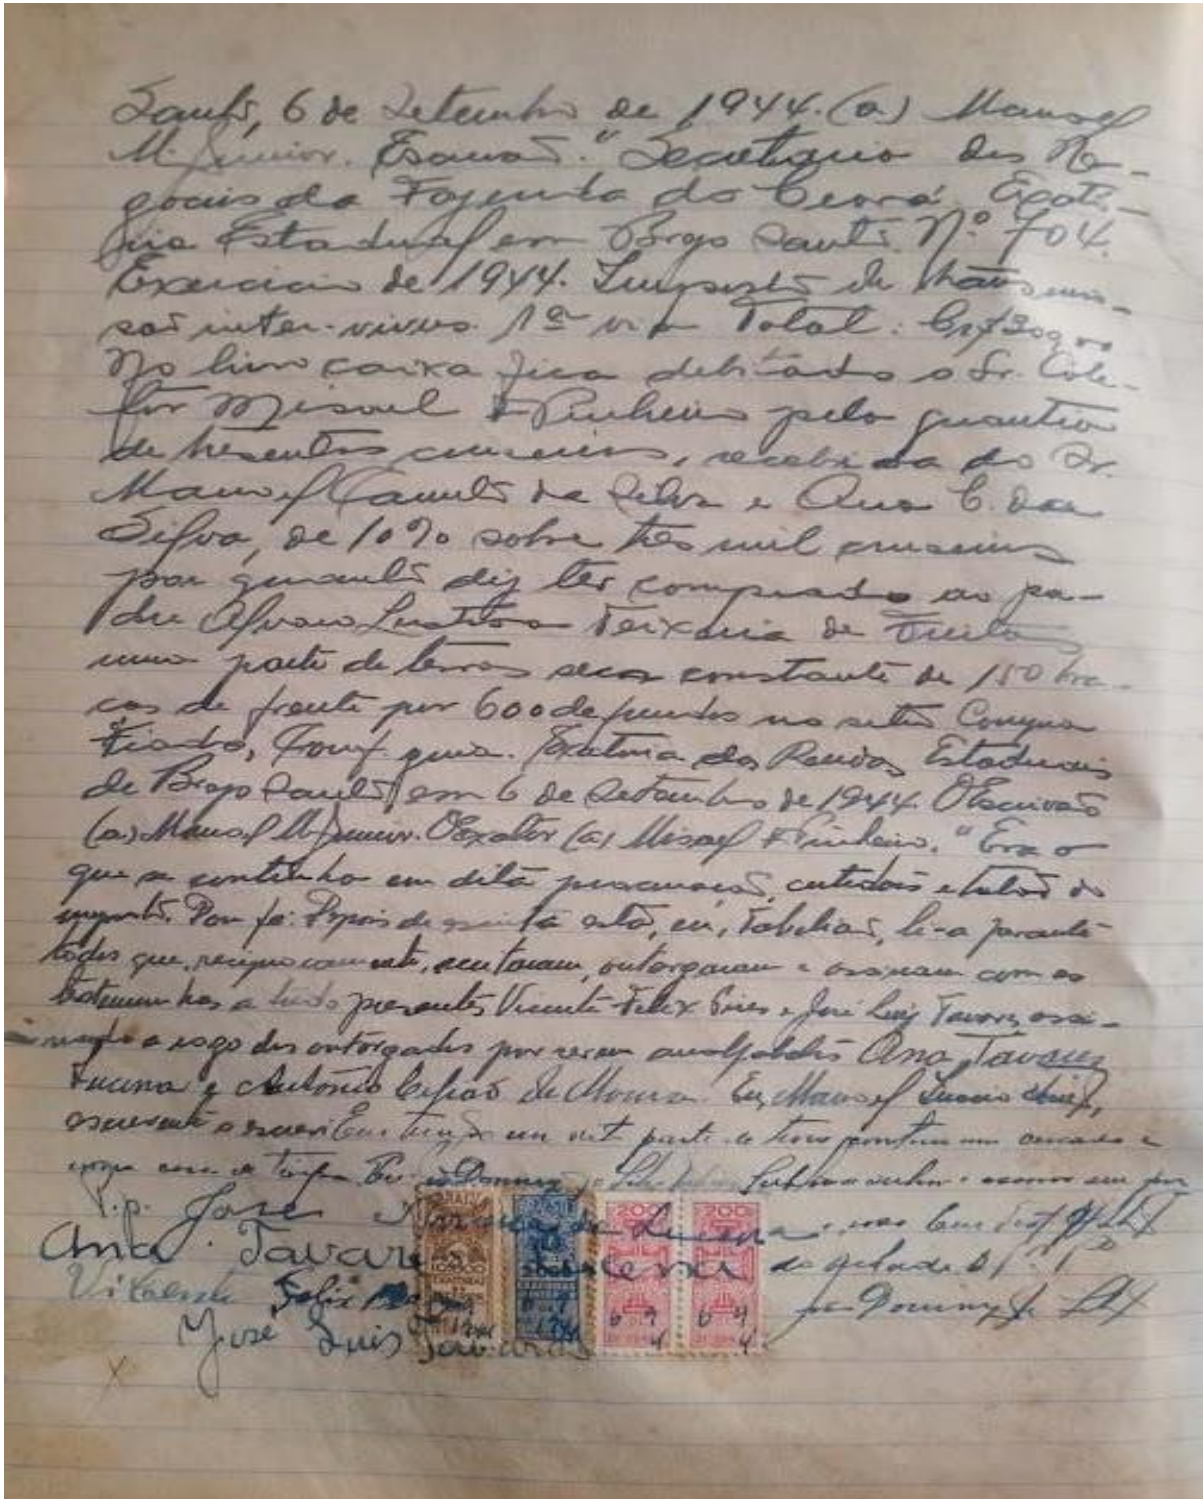 Santo, 6 de Setembro de 1944. (a) Manoel
M. Junior. Escrivão. "Secretaria dos Ne-
gocios da Fazenda do Ceará. Exato-
ria Estadual em Brejo Santo. Nº 704.
Exercicio de 1944. Imposto de transmis-
são inter-vivos. 1ª via Total: Cr$300,00
No livro caixa fica debitado o Sr. Cole-
tor Misael Pinheiro pela quantia
de tresentos cruzeiros, recebida do Sr.
Manoel Camilo da Silva e Ana C. da
Silva, de 10% sobre tres mil cruzeiros
por quanto diz ter comprado ao pa-
dre Alvaro Teixeira de
uma parte de terras secas constante de 150 bra-
ças de frente por 600 de fundos no sitio Compra
Fiado, Conf. guia. Exatoria das Rendas Estaduais
de Brejo Santo, em 6 de Setembro de 1944. O Escrivão
(a) Manoel M. Junior. O Exator (a) Misael Pinheiro." Era o
que se continha em dita procuração, certidões e talão do
imposto. Dou fé. Depois de escrita esta, eu, Tabelião, li-a perante
todos que, reciprocamente, aceitaram, outorgaram e assinam com as
testemunhas a tudo presentes Vicente Felix Pires e José Luiz Tavares, assi-
nando a rogo dos outorgados por serem analfabetos Ana Tavares
Lucena e Antonio de Moura. Eu, Manoel
escrevente o escrevi. Em tempo
casa de
P.p. José de Lucena
Ana Tavares Lucena
Vicente Felix
José Luis Tavares
200 200
6 9 6 9
4 4